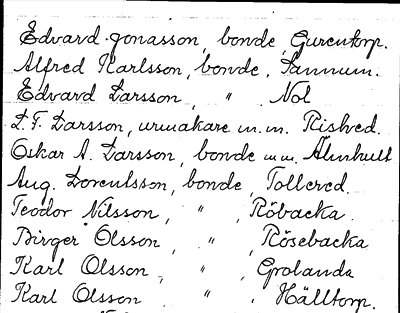 Edvard Jonasson, bonde, Gurentorp.
Alfred Karlsson, bonde, Tannum.
Edvard Larsson, " Nol
L. F. Larsson, urmakare m.m. Ristved.
Oskar A. Larsson, bonde m.m. Älmhult
Aug. Lorentsson, bonde, Tollered.
Teodor Nilsson, " , Röbacka.
Birger Olsson, " , Rösebacka
Karl Olsson, " , Grolanda
Karl Olsson " , Hälltorp.